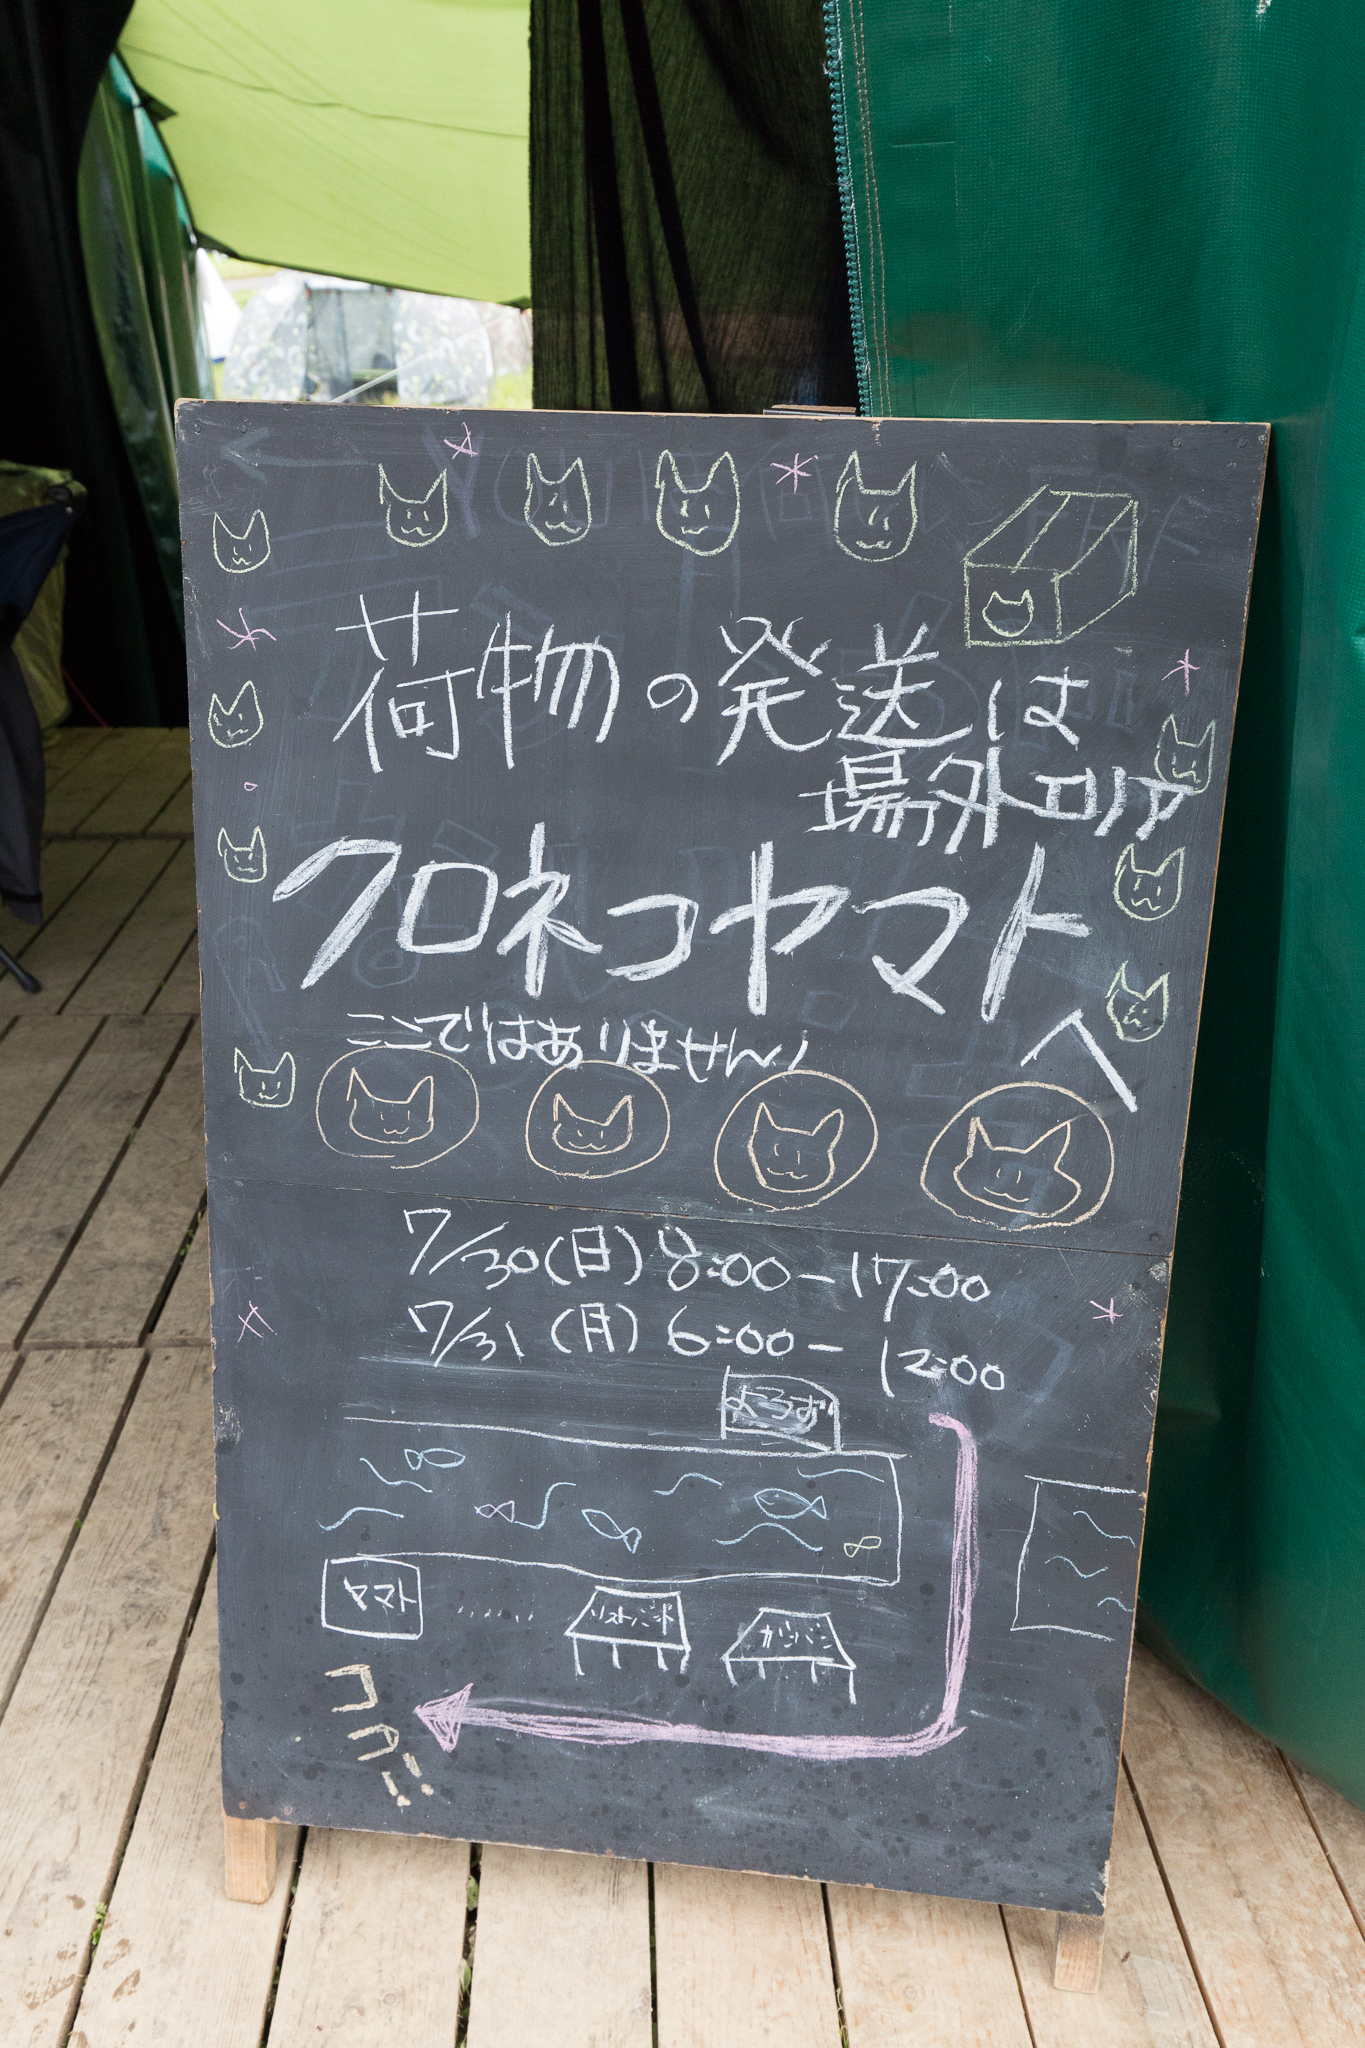 荷物の発送は
場外エリア
クロネコヤマトへ
ここではありません!
7/30(日) 8:00-17:00
7/31(月) 6:00-12:00
よろず
ヤマト
リストバンド
カンバン
ココ!!